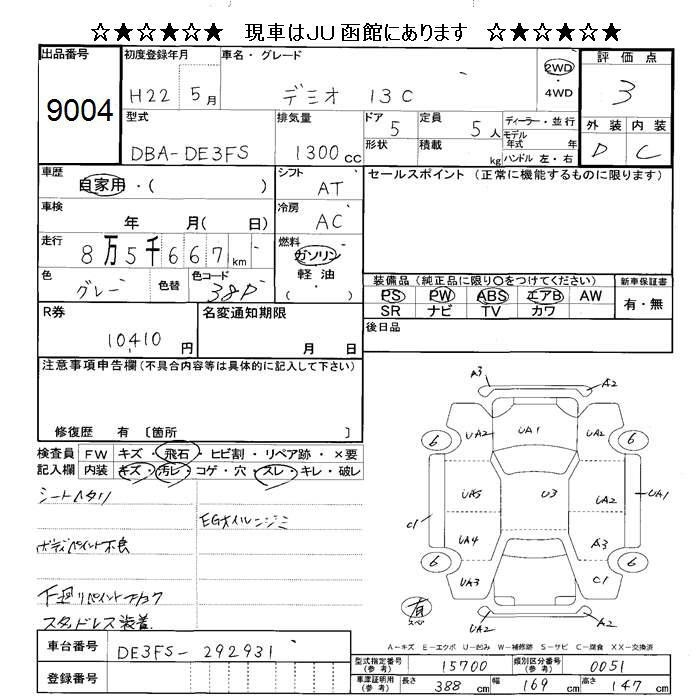 ☆★☆★☆★☆ 現車はJU函館にあります ☆★☆★☆★☆
出品番号
9004
初度登録年月
H22 5月
車名・グレード
デミオ 13C
2WD
・
4WD
評価点
3
外装 内装
D C
型式
DBA-DE3FS
排気量
1300cc
ドア
5
定員
5人
形状
積載
kg
ディーラー・並行
モデル
年式 年
ハンドル 左・右
車歴
自家用・( )
シフト
AT
セールスポイント (正常に機能するものに限ります)
車検
年 月( 日)
冷房
AC
走行
8万5千667km
燃料
ガソリン
・
軽油
・
( )
色
グレー
色替
色コード
38P
装備品 (純正品に限り○をつけてください)
新車保証書
PS PW ABS エアB AW
SR ナビ TV カワ
有・無
R券
10410円
名変通知期限
月 日
後日品
注意事項申告欄(不具合内容等は具体的に記入して下さい)
修復歴 有 〔箇所
検査員
記入欄
FW キズ・飛石・ヒビ割・リペア跡・×要
内装 キズ・汚レ・コゲ・穴・スレ・キレ・破レ
シートヘタリ
EGオイルニジミ
ボディペイント不良
下廻リペイント
スタッドレス装着
A3
A2
UA2
UA1
UA2
6
6
UA5
U3
UA2
UA1
C1
UA4
A3
6
6
UA3
C1
有
スペア
UA2
A2
A-キズ E-エクボ U-凹み W-補修跡 S-サビ C-腐食 XX-交換済
車台番号
DE3FS-292931
登録番号
型式指定番号
(参考)
15700
類別区分番号
(参考)
0051
車庫証明用
(参考)
長さ
388cm
幅
169cm
高さ
147cm